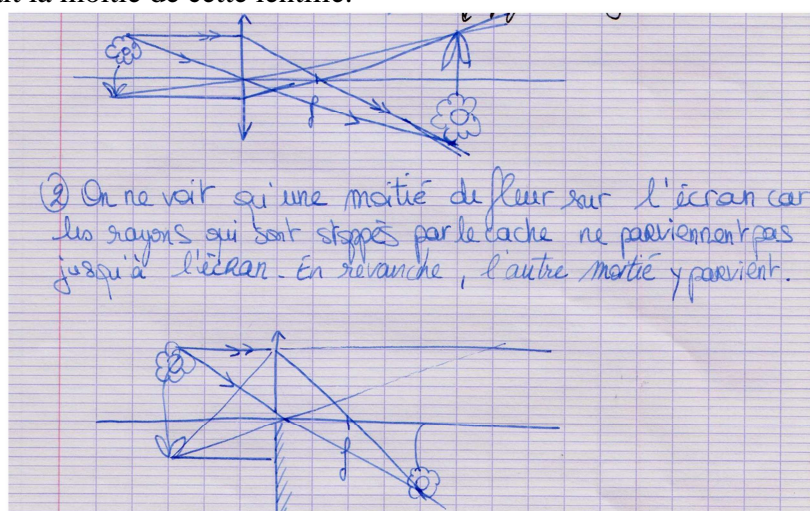 it la moitié de cette lentille.
f
② On ne voit qu'une moitié de fleur sur l'écran car
les rayons qui sont stoppés par le cache ne parviennent pas
jusqu'à l'écran. En revanche, l'autre moitié y parvient.
f